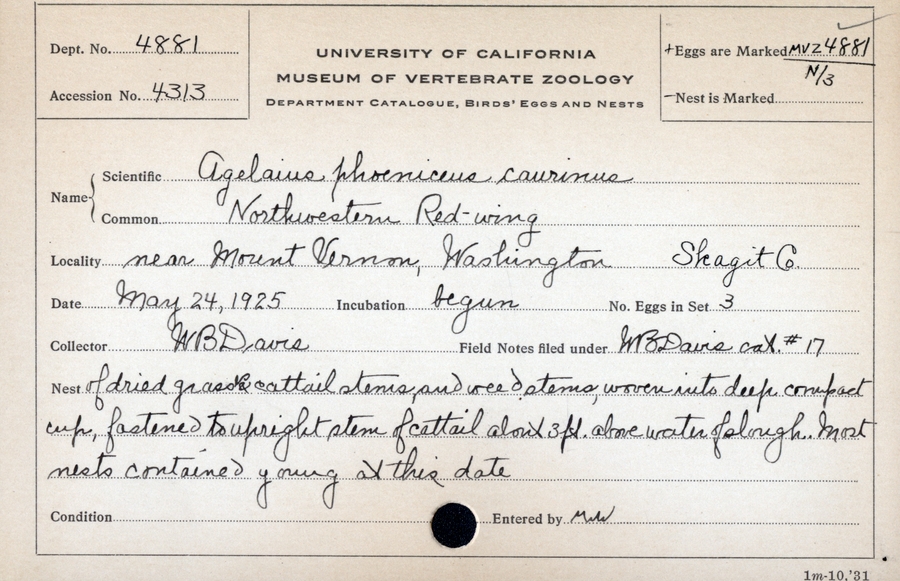 Dept. No. 4881
Accession No. 4313
UNIVERSITY OF CALIFORNIA
MUSEUM OF VERTEBRATE ZOOLOGY
DEPARTMENT CATALOGUE, BIRDS' EGGS AND NESTS
+Eggs are Marked MVZ 4881
N/3
-Nest is Marked
Name { Scientific Agelaius phoeniceus caurinus
Common Northwestern Red-wing
Locality near Mount Vernon, Washington Skagit Co.
Date May 24, 1925 Incubation begun No. Eggs in Set 3
Collector WBDavis Field Notes filed under WBDavis cat. # 17
Nest of dried grass & cattail stems, and weed stems, woven into deep compact
cup, fastened to upright stem of cattail about 3 ft. above water of slough. Most
nests contained young at this date
Condition Entered by
1m-10,'31